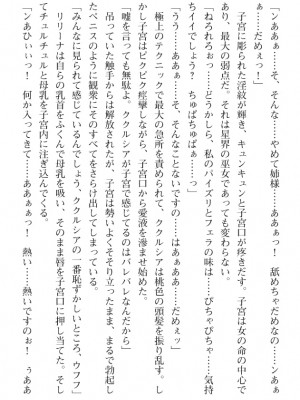 「ンああぁ……そ、そんな……やめて姉様……ああぁっ！　舐めちゃだめなの……ンあぁ
ぁ……だめぇっ！」
子宮に彫られた淫紋が輝き、キュンキュンと子宮口が疼きだす。子宮は女の命の中心で
あり、最大の弱点だ。それは星界の巫女であっても変わらない。
「ねろれろぉっ……どうかしら、私のパイズリとフェラの味は……ぴちゃぴちゃ……気持
チイイでしょう？　ちゅぱちゅぱぁっ……」
「うう……ああぁっ……そ、そんなことないですの……はぁぁあ……だめぇッ」
極上のテクニックで最大の急所を責められて、ククルシアは桃色の頭髪を振り乱す。し
かし子宮はピクピク痙攣しながら、子宮口から愛液を滲ませ始めた。
「嘘を言っても無駄よ。ククルシアが子宮で感じてるのはバレバレなんだから」
吊っていた触手からは解放されたが、子宮は勢いよくそそり立ったまま、まるで勃起し
たペニスのように観衆にそのすべてをさらけ出してしまう。
「みんなに見られて感じているんでしょう、ククルシアの一番恥ずかしいところ、ウフフ」
リリーナは自らの乳首をふくんで母乳を吸い、そのまま唇を子宮口に押し当てた。そし
てチュルチュルと母乳を子宮内に注ぎ込んでくる。
「ンあひぃぃっ　何か入ってきて……ああぁぁっ！　熱い……熱いですのぉ！　ぅああ